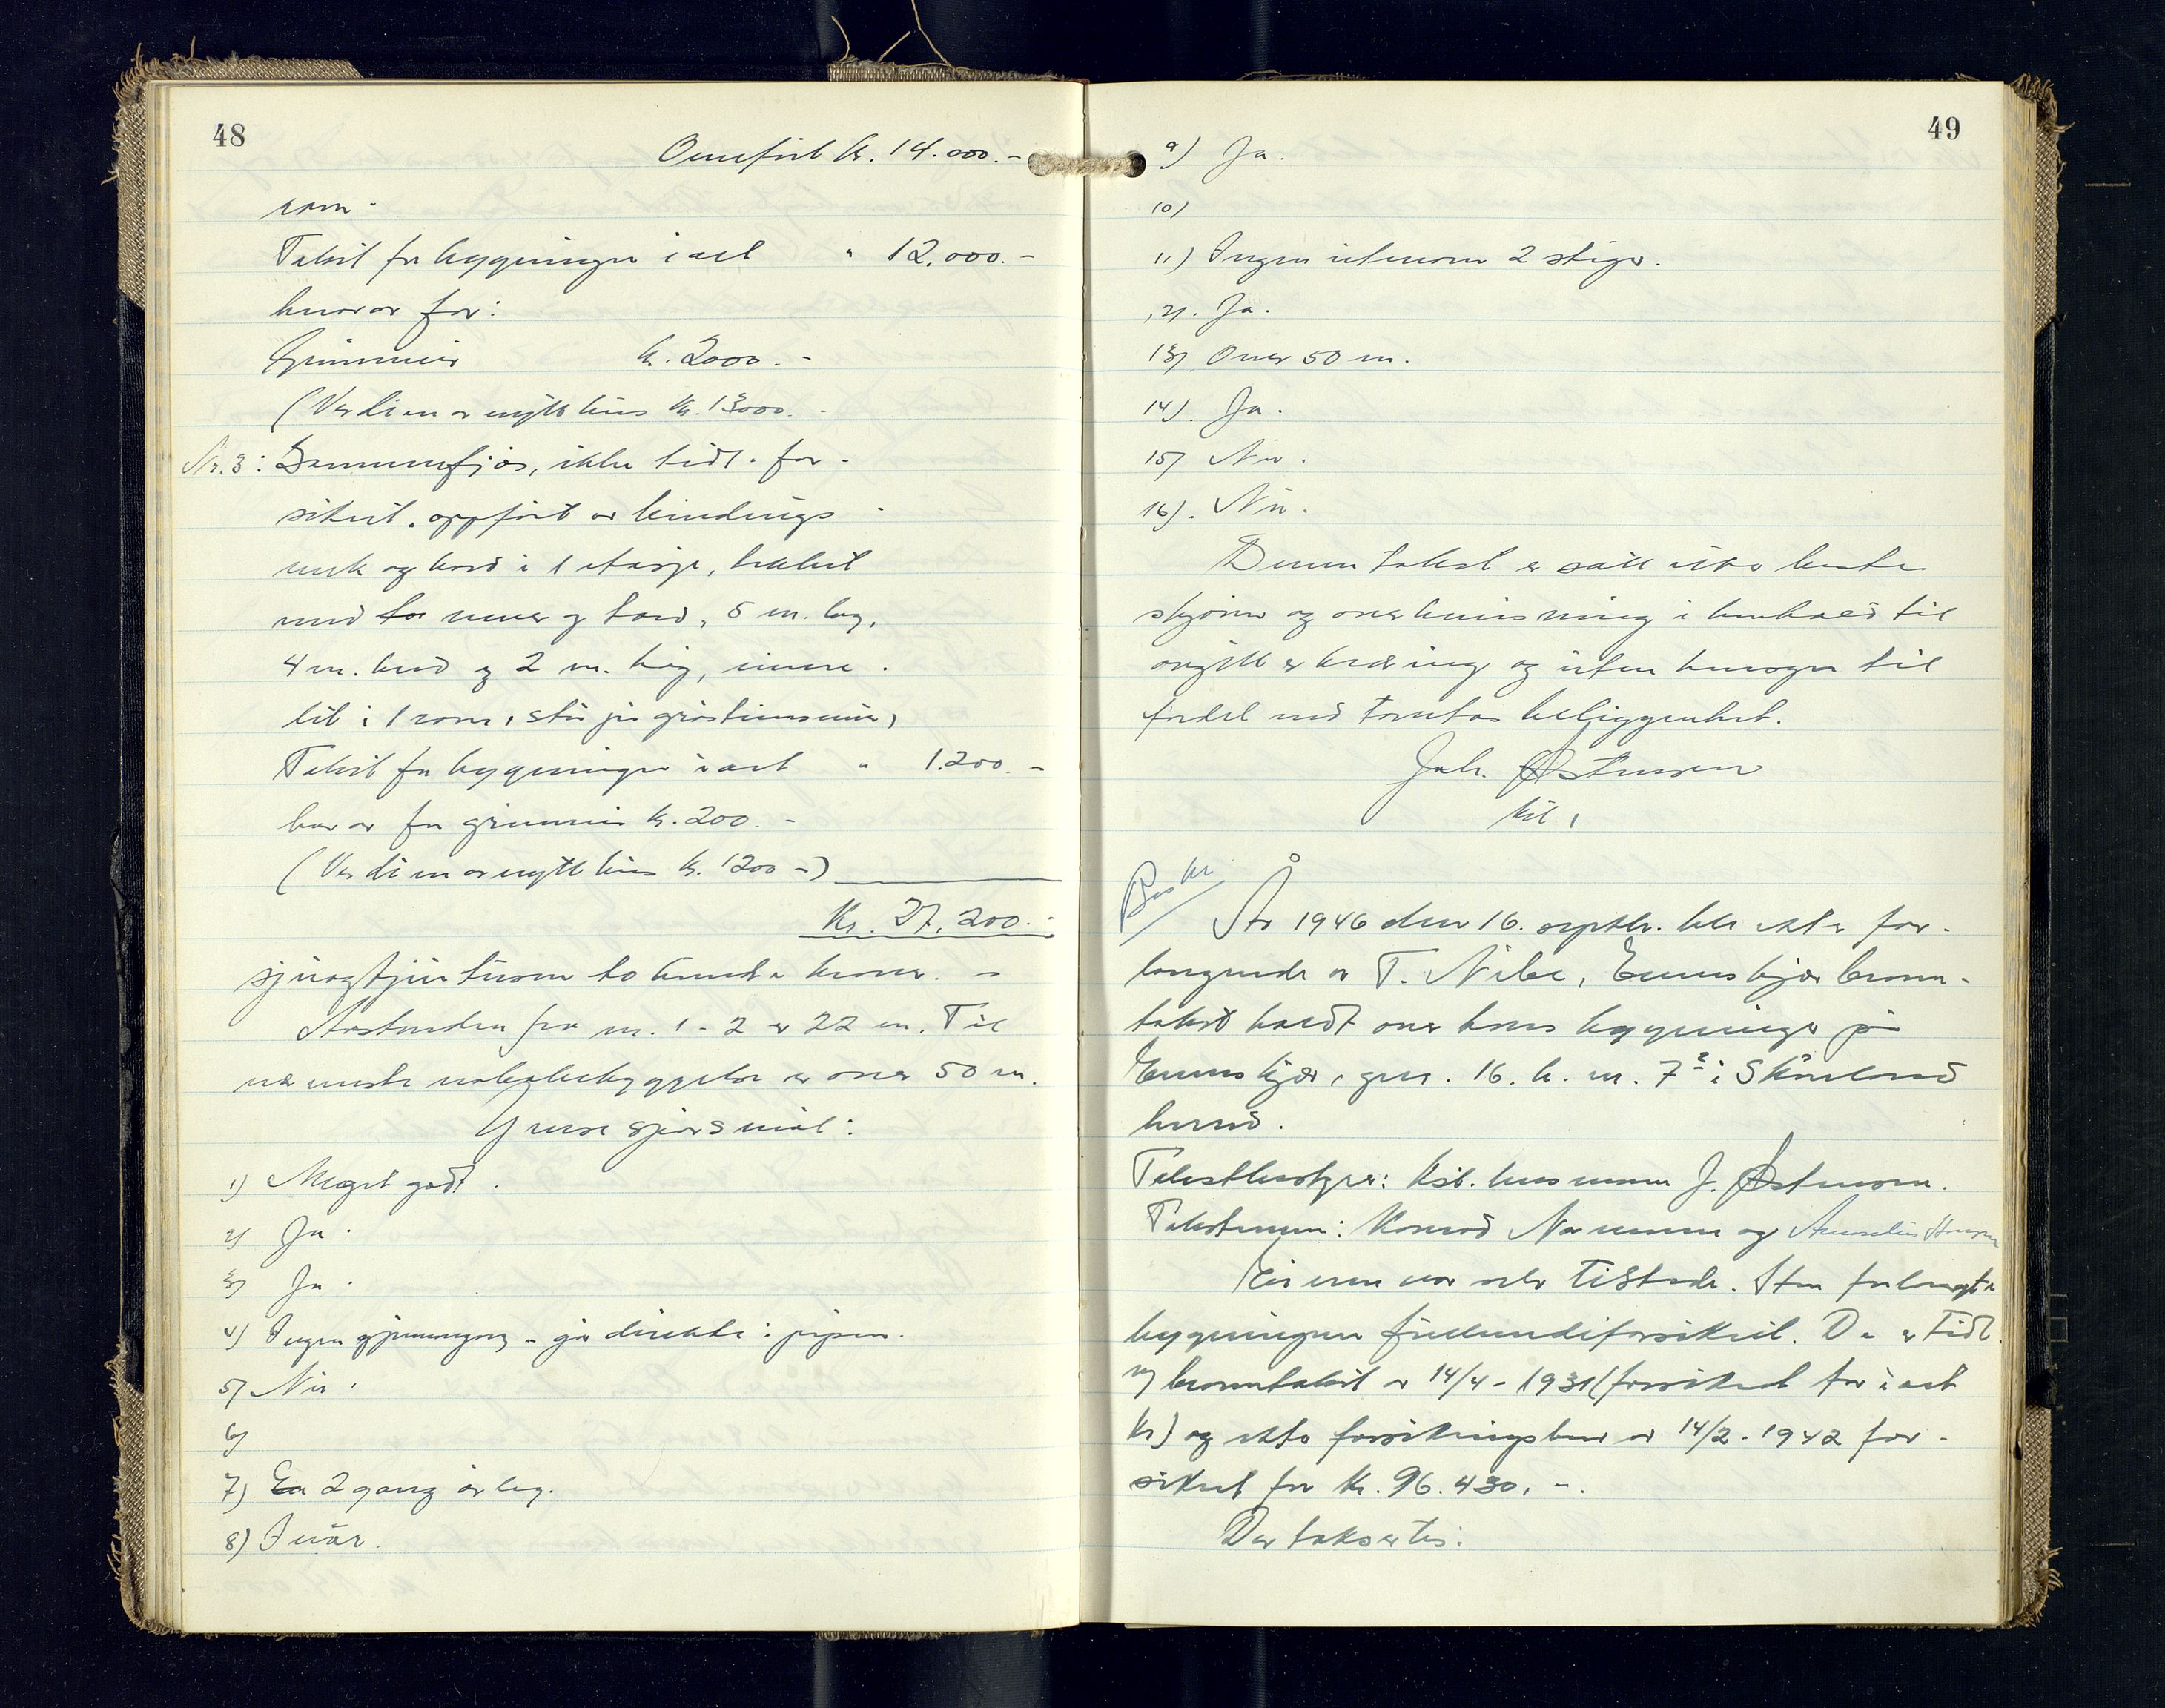 48
Overført kr. 14.000.-
rom.
Takst for bygningen i alt " 12.000.-
hvorav for:
Grunnmur kr. 2000.-
(Verdien av nytt hus kr. 13000.-
Nr. 3: Sommerfjøs, ikke tidl. for-
sikret, oppført av bindings-
verk og bord i 1 etasje, tekket
med to never og torv, 5 m. lang,
4 m. bred og 2 m. høg, innre-
tet i 1 rom, står på gråsteinsmur,
Takst for bygningen i alt " 1.200.-
herav for grunnmur kr. 200.-
(Verdien av nytt hus kr. 1200-)
Kr. 27.200.-
sjuogtjue tusen to hundre kroner.-
Avstanden fra nr. 1-2 er 22 m. Til
nærmeste nabobebyggelse er over 50 m.
Ymse spørsmål:
1) Meget godt.
2) Ja.
3) Ja.
4) Ingen - går direkte i pipen.
5) Nei.
6)
7) En 2 gang årleg.
8) I uår.
49
9) Ja.
10)
11) Ingen utenom 2 stiger.
12). Ja.
13) Over 50 m.
14). Ja.
15) Nei.
16). Nei.
Denne takst er satt etter beste
skjønn og overbevisning i henhold til
avgitt erklæring og uten hensyn til
fordel ved tomtas beliggenhet.
Joh. Østensen
kst.
Beskr
År 1946 den 16. septbr. ble etter for-
langende av T. Nibe, Evenskjær brann-
takst holdt over hans bygninger på
Evenskjær, gnr. 16. b. nr. 7² i Skånland
herred.
Takstbestyrer: Kst. lensmann J. Østensen.
Takstmenn: Konrad Normann og
Eieren var selv tilstede. Han forlangte
bygningen fullverdiforsikret. De er tidl.
ved branntakst av 14/4-1931 (forsikret for i alt
kr) og etter forsikringsbrev av 14/2-1942 for-
sikret for kr. 96.430.-.
Der taksertes: